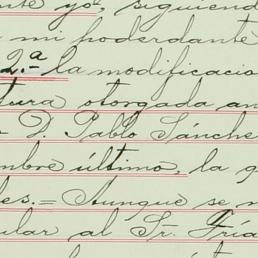 nte yo, siguiendo
mi poderdante
2.ª - la modificacio
tura otorgada an
D. Pablo Sánche
mbre último, la q
les. = Aunque se m
ular al Sr. Fría